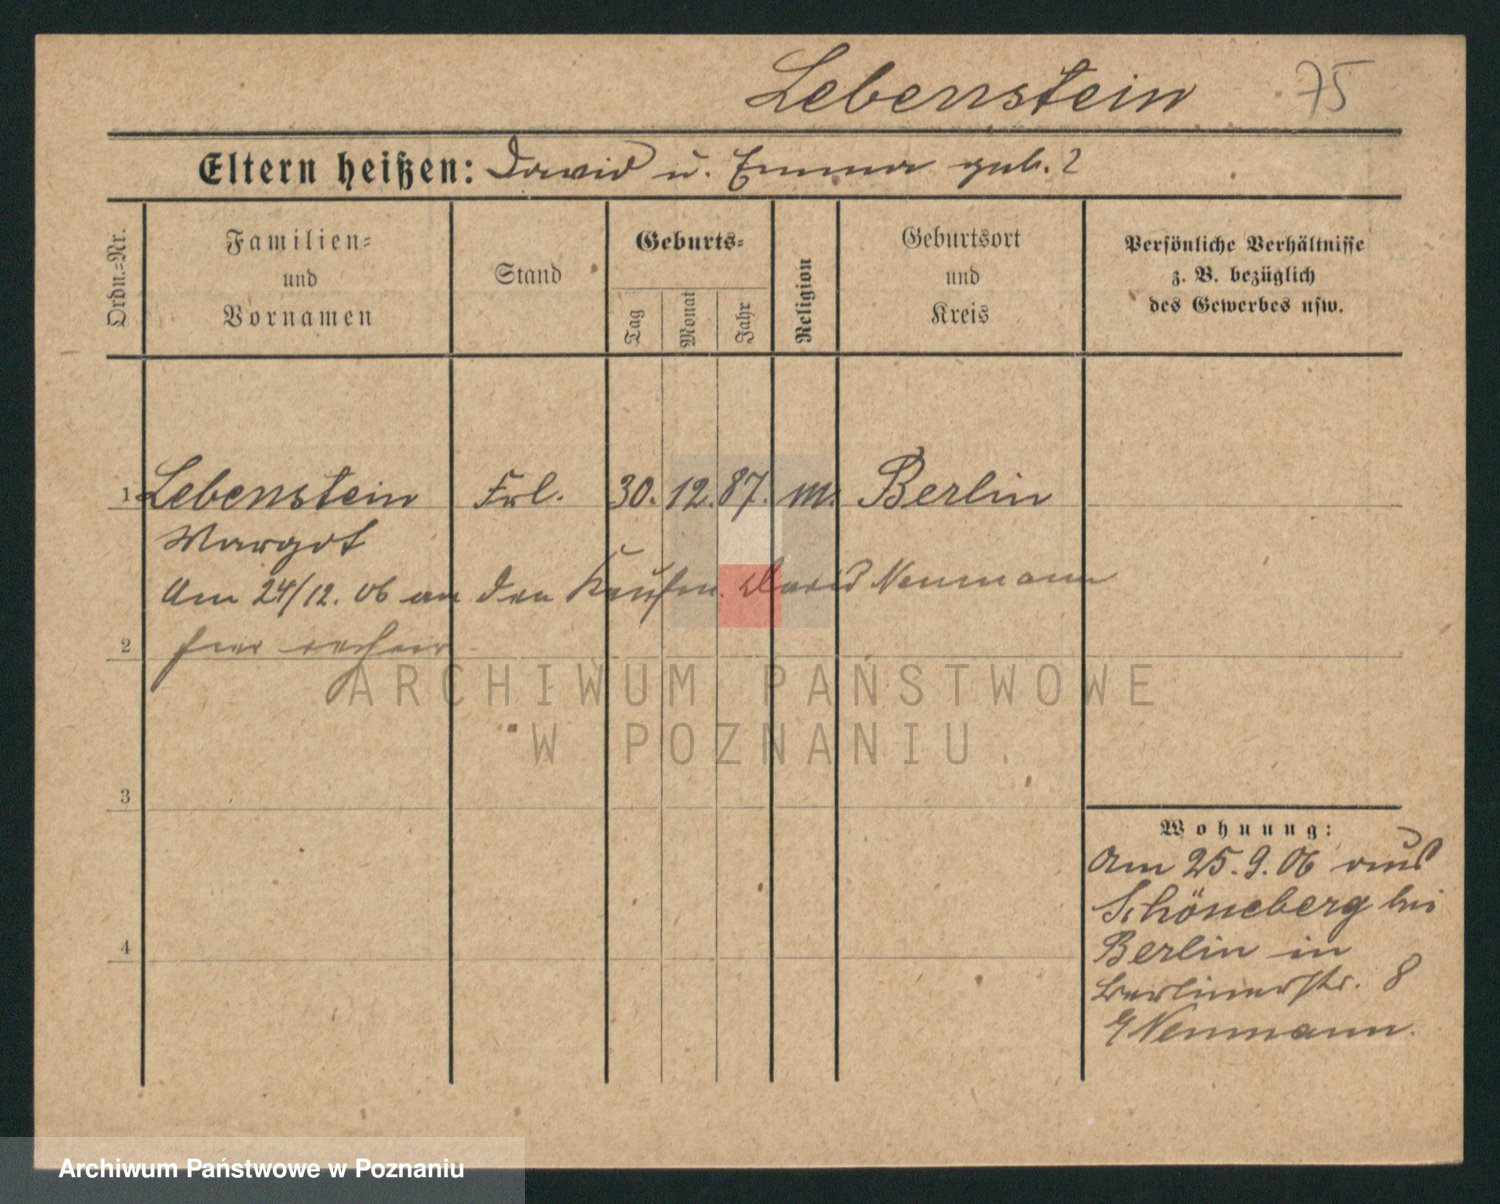 Lebenstein 75
Eltern heißen: David u. Emma geb. ?
Ordn.-Nr.
Familien-
und
Vornamen
Stand
Geburts-
Tag
Monat
Jahr
Religion
Geburtsort
und
Kreis
Persönliche Verhältnisse
z. B. bezüglich
des Gewerbes usw.
1 Lebenstein Frl. 30. 12. 87. m. Berlin
Margot
Am 24/12. 06 an den Kaufm. David Neumann
2 hier
ARCHIWUM PAŃSTWOWE
W POZNANIU
3
4
Wohnung:
Am 25. 9. 06 aus
Schöneberg bei
Berlin in
Berlinerstr. 8
Neumann.
Archiwum Państwowe w Poznaniu